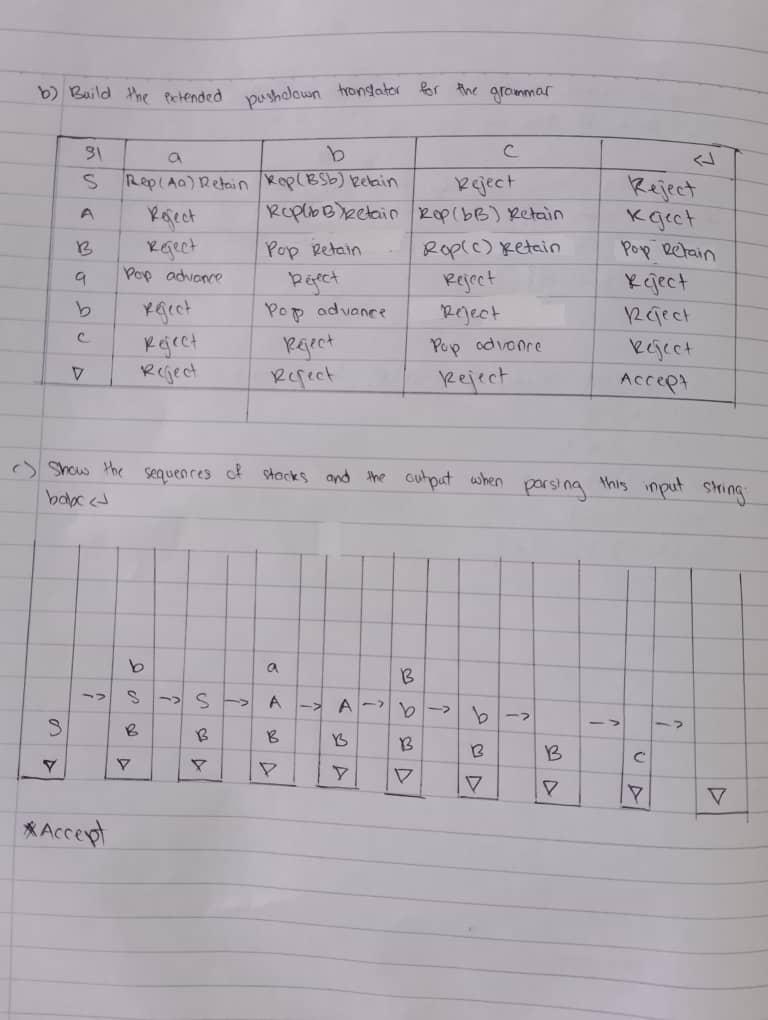 b) Build the extended pushdown translator for the grammar
S1 a b c ↵
S Rep(Aa) Retain Rep(BSb) Retain Reject Reject
A Reject Rep(bB) Retain Rep(bB) Retain Reject
B Reject Pop Retain Rep(c) Retain Pop Retain
a Pop advance Reject Reject Reject
b Reject Pop advance Reject Reject
c Reject Reject Pop advance Reject
▽ Reject Reject Reject Accept
c) Show the sequences of stacks and the output when parsing this input string:
babc ↵
b a B
-> S -> S -> A -> A -> b -> b -> -> ->
S B B B B B B B C
▽ ▽ ▽ ▽ ▽ ▽ ▽ ▽ ▽ ▽
*Accept